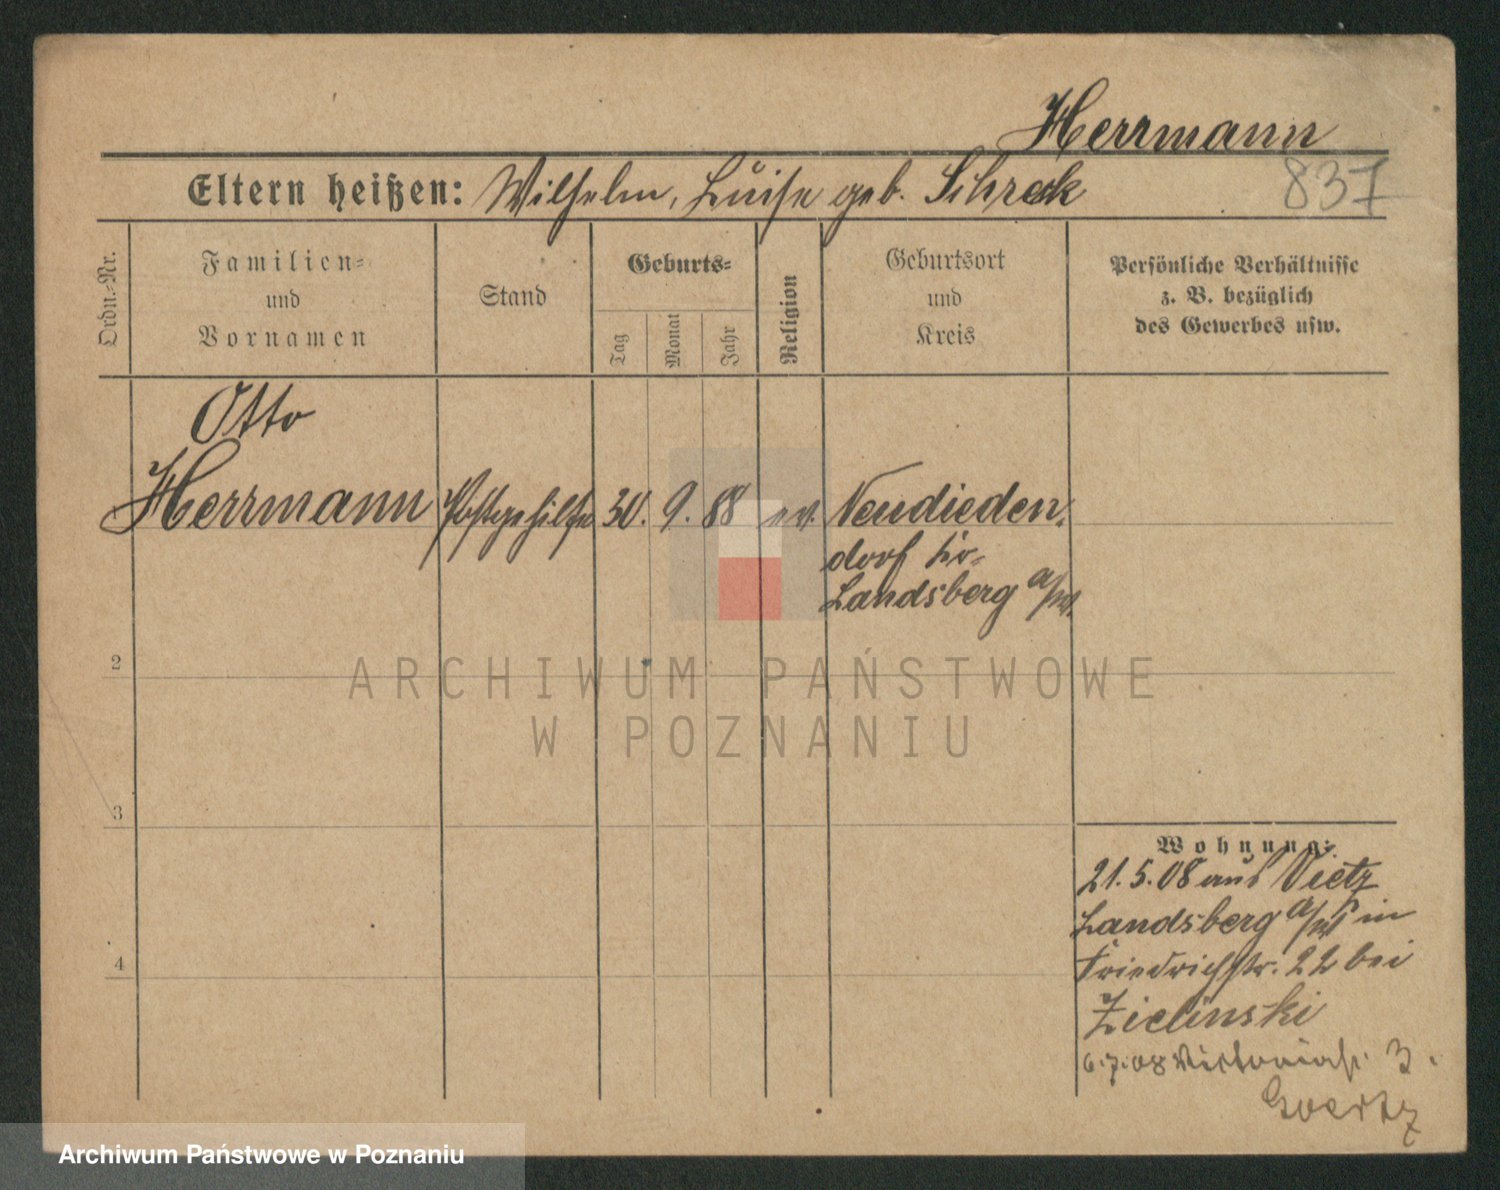 Herrmann
Eltern heißen: Wilhelm, Luise geb. Schreck
837
Ordn.-Nr.
Familien-
und
Vornamen
Stand
Geburts-
Tag
Monat
Jahr
Religion
Geburtsort
und
Kreis
Persönliche Verhältnisse
z. B. bezüglich
des Gewerbes usw.
Otto
Herrmann Postgehilfe 30. 9. 88 ev. Neudieden.
dorf Kr.
Landsberg a/W.
2
ARCHIWUM PAŃSTWOWE
W POZNANIU
3
Wohnung:
21.5.08 aus Vietz
Landsberg a/W in
4
Friedrichstr. 22 bei
Zielinski
6.7.08 Viktoriastr. 3.
Goertz
Archiwum Państwowe w Poznaniu